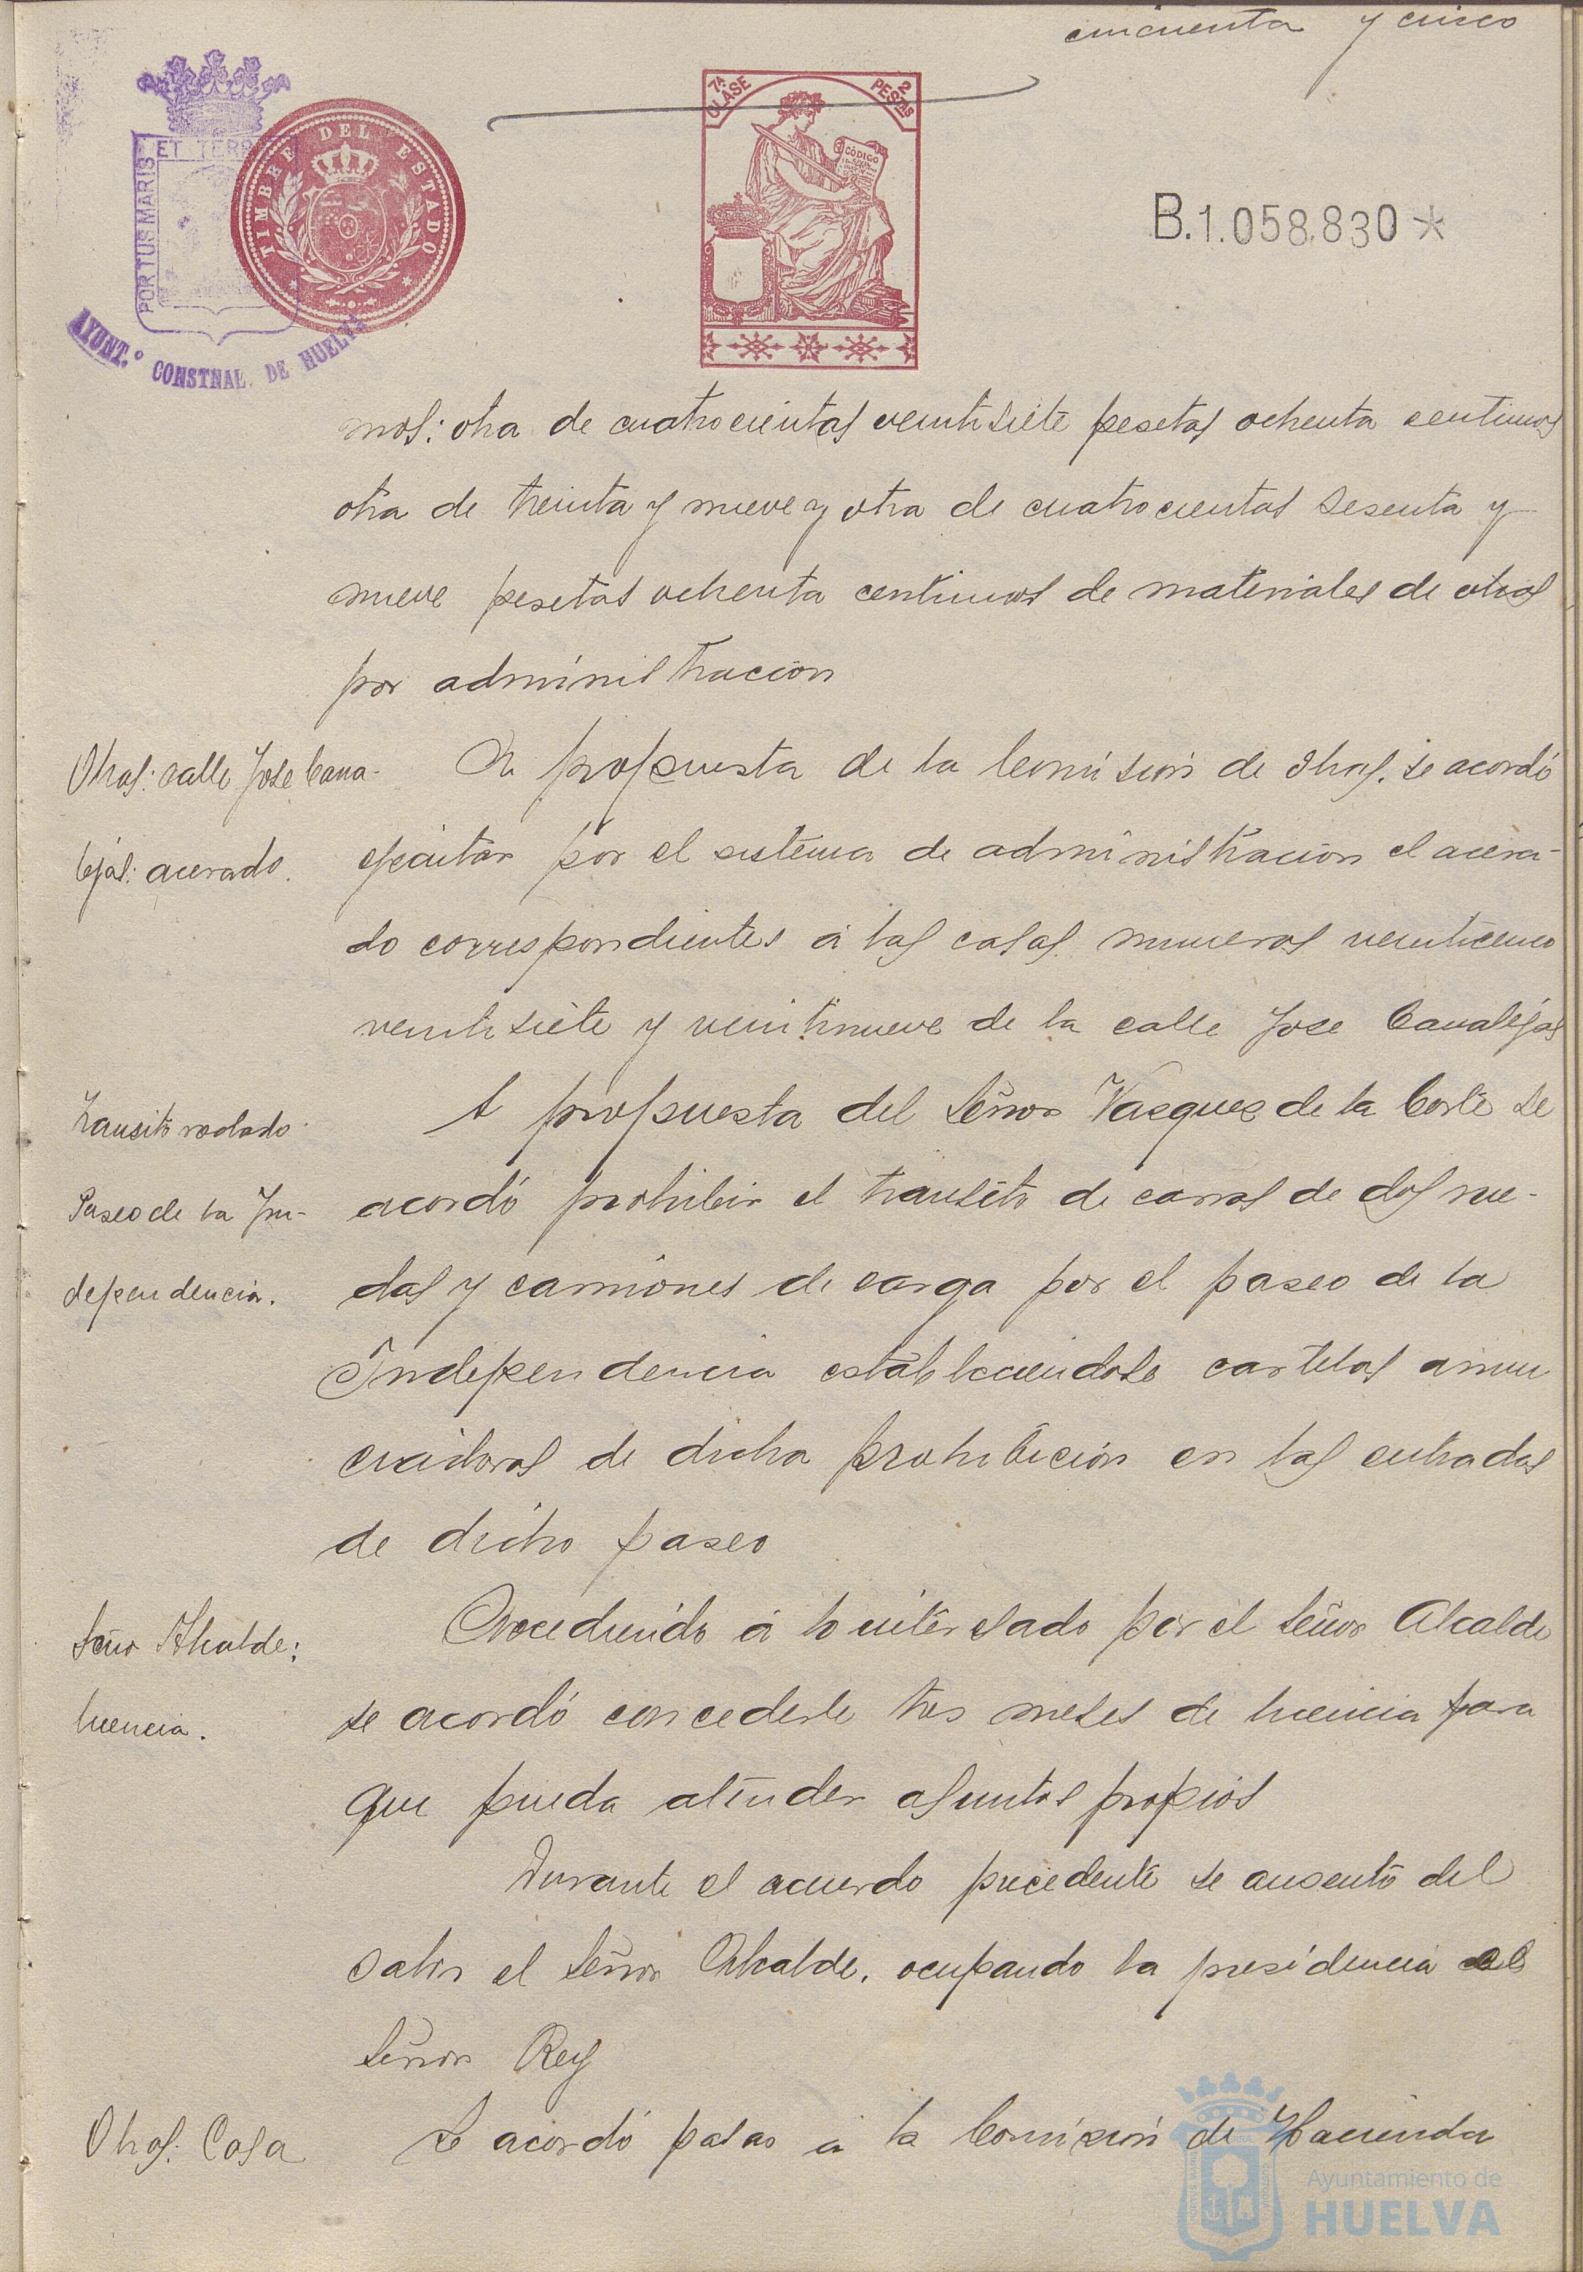 cincuenta y cinco
7ª CLASE
2 PESTAS
CÓDIGO
ET TERR
PORTUS MARIS
TIMBRE DEL ESTADO
AYUNT.º CONSTNAL. DE HUELVA
B.1.058.830*
mos: otra de cuatrocientas veintisiete pesetas ochenta centimos
otra de treinta y nueve y otra de cuatrocientas sesenta y
nueve pesetas ochenta centimos de materiales de obras
por administracion
Obras: calle Jose Cana-
lejas: acerado.
A propuesta de la Comision de Obras, se acordó
ejecutar por el sistema de administracion el acera-
do correspondientes á las casas numeros veinticinco
veintisiete y veintinueve de la calle Jose Canalejas
Transito rodado
Paseo de la In-
dependencia.
A propuesta del Señor Vazquez de la Corte se
acordó prohibir el transito de carros de dos rue-
das y camiones de carga por el paseo de la
Independencia estableciendose cartelas anun
ciadoras de dicha prohibicion en las entradas
de dicho paseo
Señor Alcalde:
licencia.
Accediendo á lo interesado por el Señor Alcalde
se acordó concederle tres meses de licencia para
que pueda atender asuntos propios
Durante el acuerdo precedente se ausentó del
salon el Señor Alcalde, ocupando la presidencia el
Señor Rey
Obras: Casa
Se acordó pasar á la Comision de Hacienda
Ayuntamiento de
HUELVA